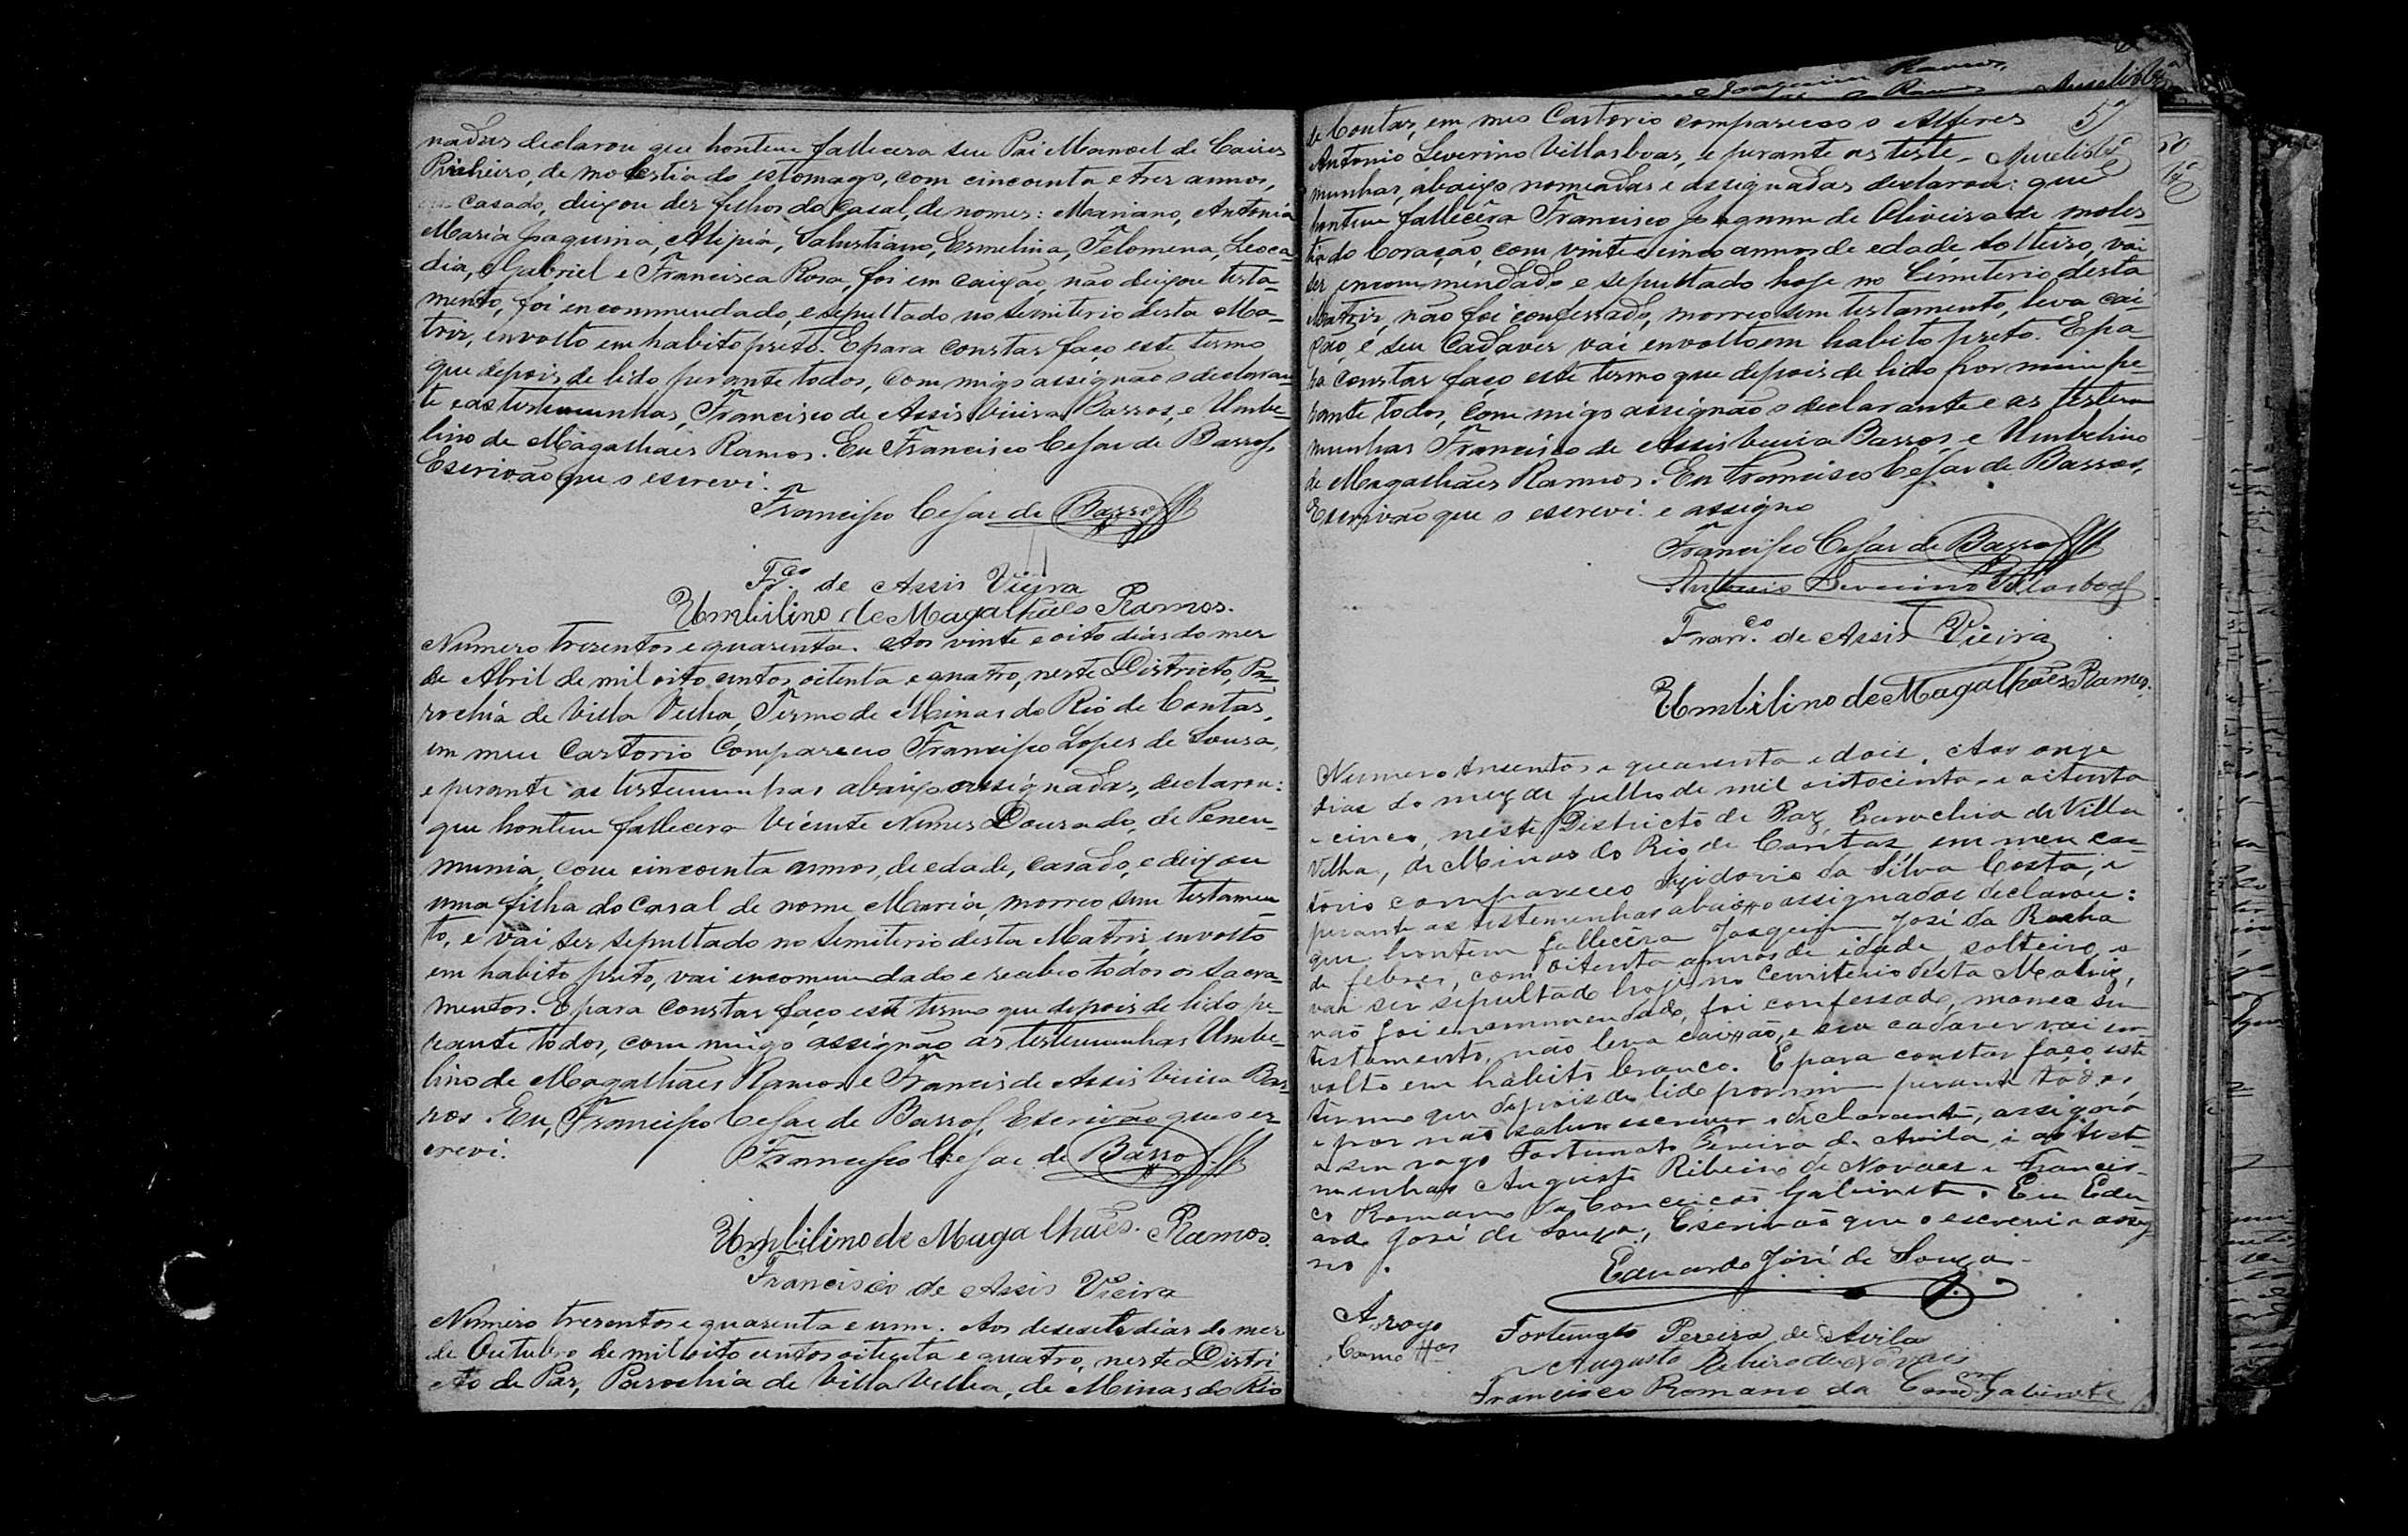 nadas declarou que hontem fallecera seu Pai Manoel de Caires
Pinheiro, de molestia do estomago, com cincoenta e tres annos,
casado, deixou dez filhos do casal, de nomes: Mariano, Antonia
Maria Joaquina, Alipia, Salustiano, Ermelina, Felomena, Leoca
dia, Gabriel e Francisca Rosa, foi em caixão, não deixou testa-
mento, foi encommendado, e sepultado no semiterio desta Ma-
triz, envolto em habito preto. E para constar faço este termo
que depois de lido perante todos, com migo assignão o declaran-
te e as testemunhas, Francisco de Assis Vieira Barros, e Umbe-
lino de Magalhães Ramos. Eu Francisco Cesar de Barros,
Escrivão que o escrevi.
Francisco Cesar de Barros
Fco. de Assis Vieira
Umbilino de Magalhães Ramos.
Numero tresentos e quarenta. Aos vinte e oito dias do mez
de Abril de mil oito centos oitenta e quatro, neste Districto, Pa-
rochia de Villa Velha, Termo de Minas do Rio de Contas,
em meu Cartorio Compareceo Francisco Lopes de Sousa,
e perante as testemunhas abaixo assignadas, declarou:
que hontem fallecera Vicente Nunes Dourado, de Peneu-
munia, com cincoenta annos, de edade, casado, e deixou
uma filha do casal de nome Maria, morreo sem testamen-
to, e vai ser sepultado no Semiterio desta Matriz envolto
em habito preto, vai encommendado e recebeo todos os Sacra-
mentos. E para constar faço este termo que depois de lido pe-
rante todos, com migo assignão as testemunhas Umbe-
lino de Magalhães Ramos e Francis de Assis Vieira Bar-
ros. Eu, Francisco Cesar de Barros, Escrivão que o es-
crevi.
Francisco Cesar de Barros
Umbilino de Magalhães Ramos.
Francisco de Assis Vieira
Numero tresentos e quarenta e um. Aos desesete dias do mez
de Outubro de mil oito centos oitenta e quatro, neste Distri
cto de Paz, Parochia de Villa Velha, de Minas do Rio
de Contas, em meo Cartorio compareceo o Alferes
Antonio Severino Villasboas, e perante as teste-
munhas, abaixo nomeadas e assignadas declarou: que
hontem fallecêra Francisco Joaquim de Oliveira de moles
tia do Coração, com vinte e cinco annos de edade, solteiro, vai
ser encommendado e sepultado hoje no Cimiterio desta
Matriz, não foi confessado, morreo sem testamento, leva cai-
xão, e seu Cadaver vai envolto em habito preto. E pa-
ra constar faço este termo que depois de lido por mim pe-
rante todos, com migo assignão o declarante e as testem
munhas Francisco de Assis Vieira Barros, e Umbelino
de Magalhães Ramos. Eu Francisco Cesar de Barros,
Escrivão que o escrevi e assigno
Francisco Cesar de Barros
Antonio Severino Villasboas
Franco. de Assis Vieira
Umbilino de Magalhães Ramos.
Numero tresentos e quarenta e dois. Aos onze
dias do mez de julho de mil oitocentos e oitenta
e cinco, neste Districto de Paz, Parochia de Villa
Velha, de Minas do Rio de Contas em meu car-
torio compareceo Izidorio da Silva Costa, e
perante as testemunhas abaixo assignadas declarou:
que hontem fallecêra Joaquim José da Rocha
de febres, com oitenta annos de idade, solteiro, e
vai ser sepultado hoje no Cemiterio desta Matriz,
não foi encommendado, foi confessado, morreo sem
testamento, não leva caixão, e seu cadaver vai en-
volto em habito branco. E para constar faço este
termo que depois de lido por mim perante todos
e por não saber escrever o declarante, assigna
a seu rogo Fortunato Pereira de Avila, e as test-
munhas Augusto Ribeiro de Novaes e Francis-
co Romano da Conceição Gabinete. Eu Edu
ardo José de Souza, Escrivão que o escrevi e assig
no.
Eduardo José de Souza
A rogo Fortunato Pereira de Avila
Como ttas Augusto Ribeiro de Novais
Francisco Romano da Concm Gabinete